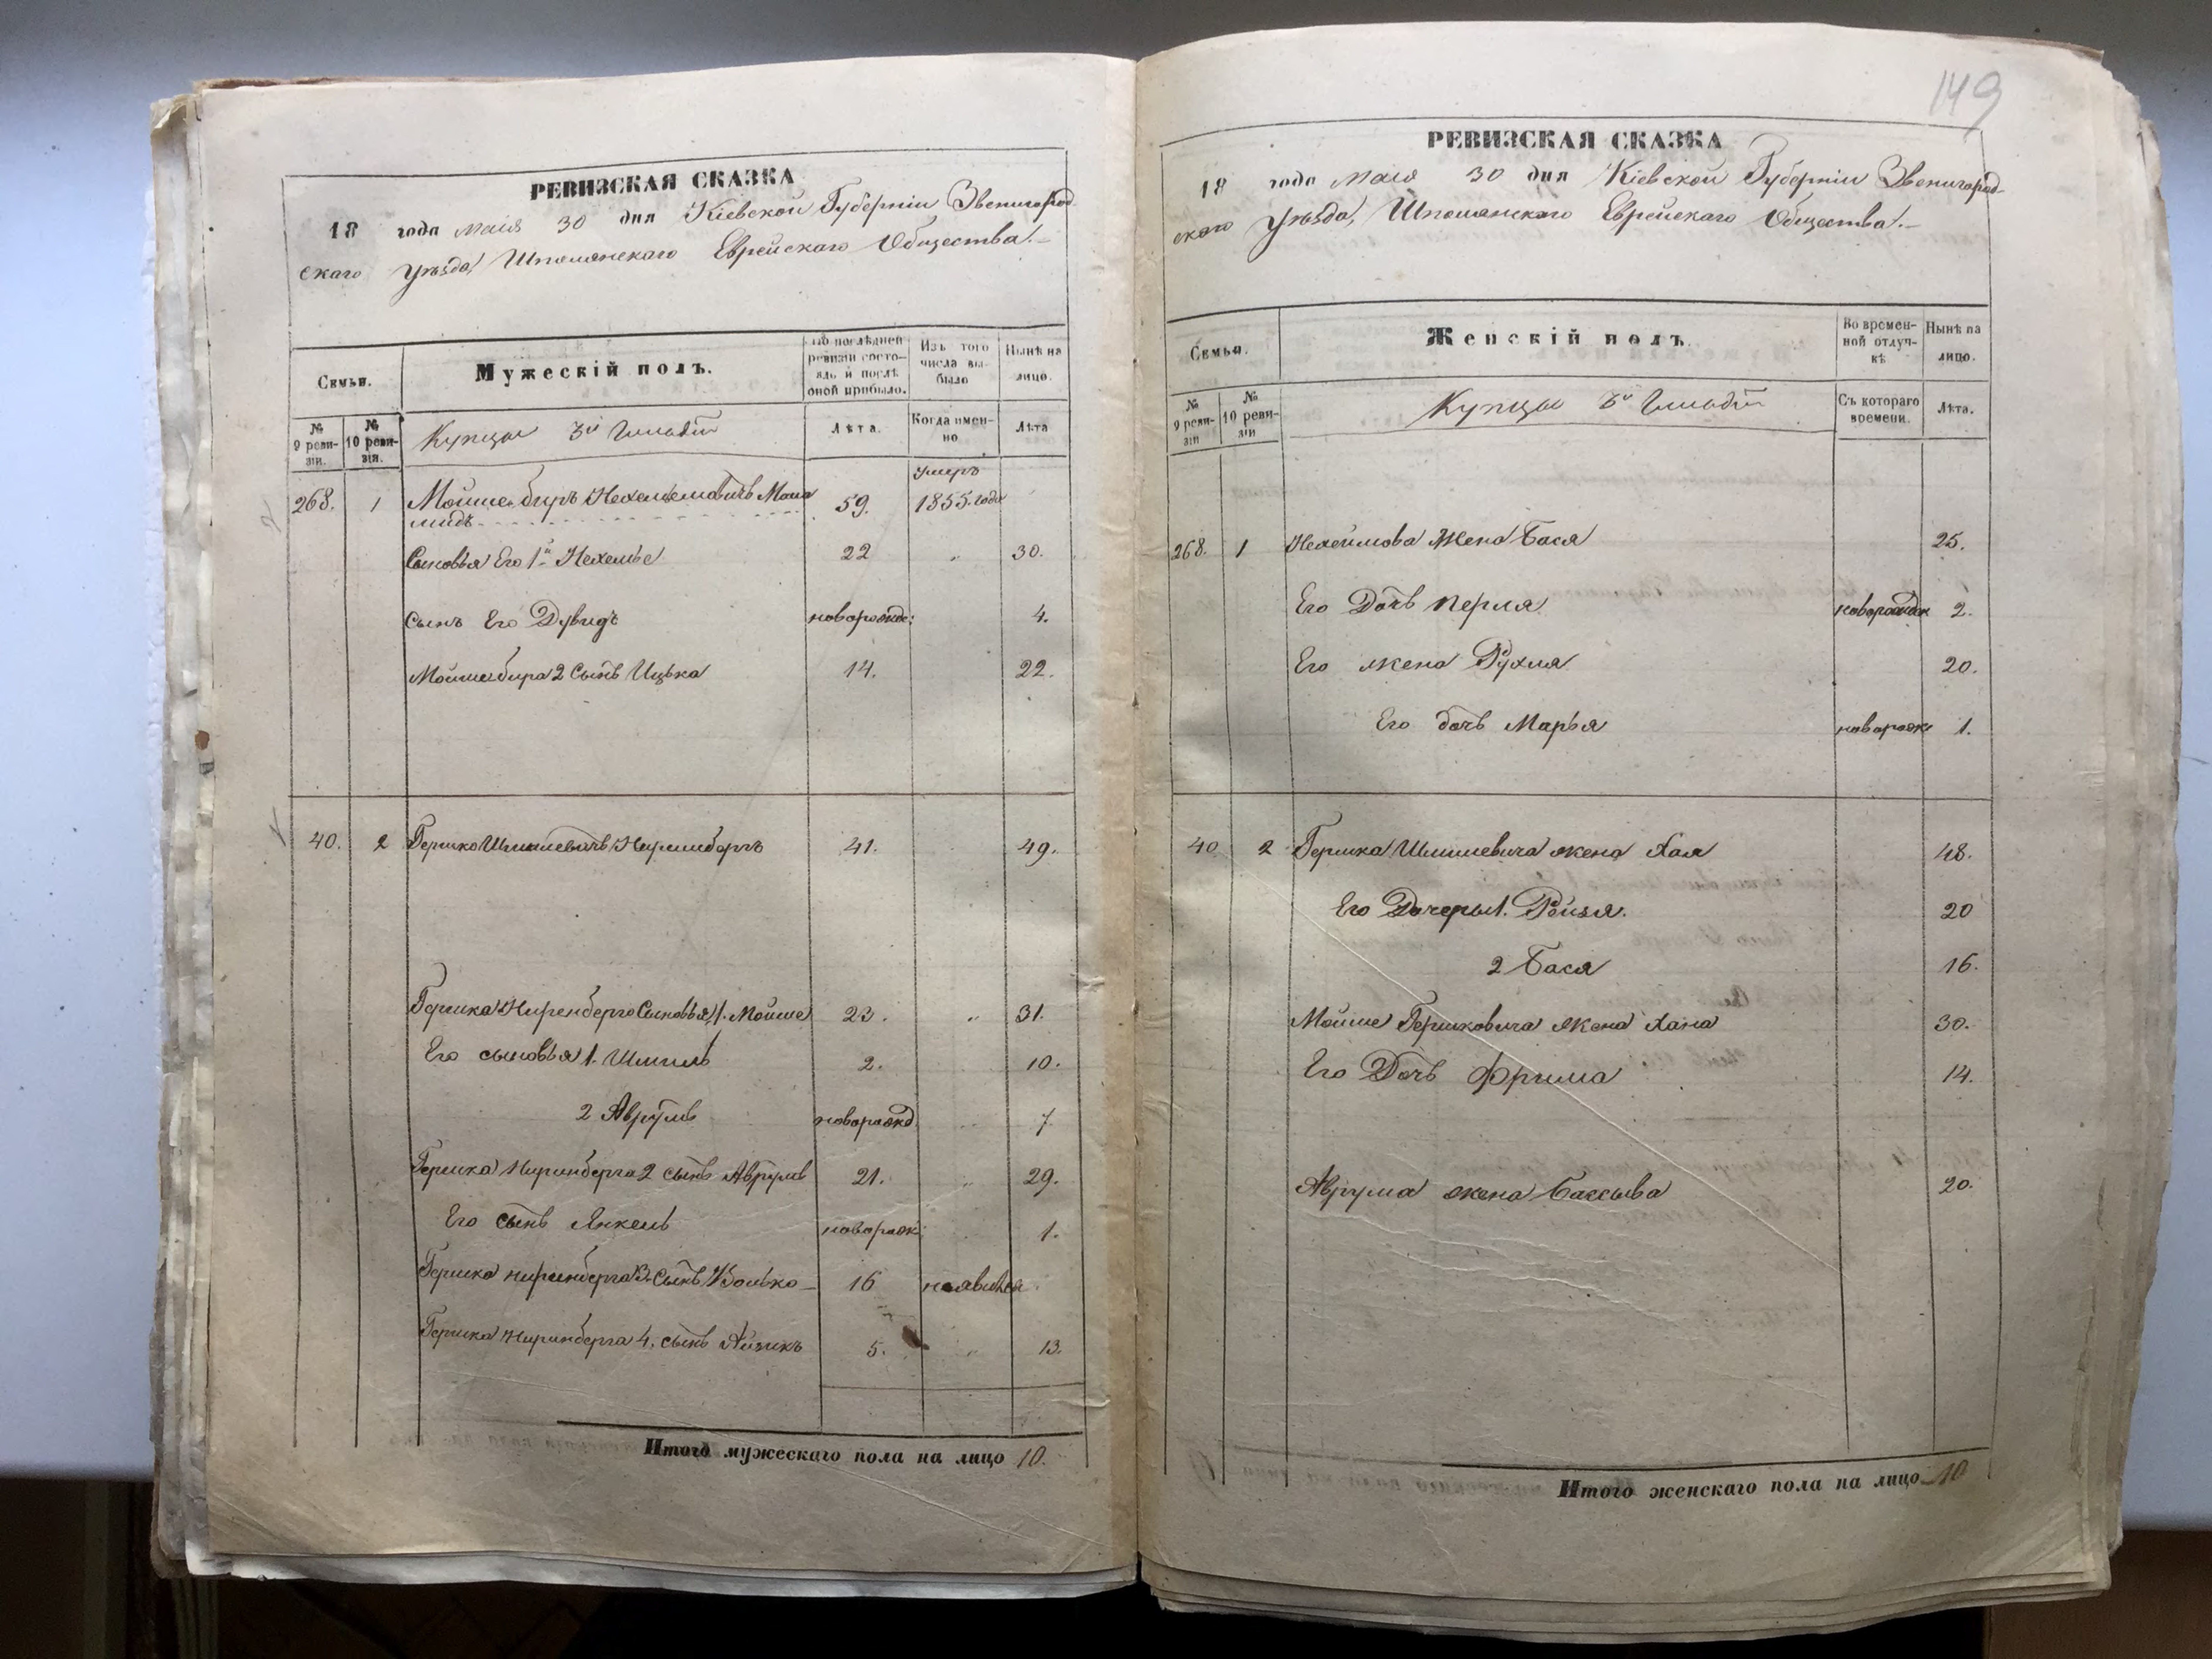 РЕВИЗСКАЯ СКАЗКА
18 года маія 30 дня Кіевской Губерніи Звенигород-
скаго уѣзда, Шполянскаго Еврейскаго Общества.
Семьи.
Мужескій полъ.
По послѣдней ревизіи состояло и послѣ оной прибыло.
Изъ того числа выбыло
Нынѣ на лицо.
№ 9 ревизіи.
№ 10 ревизія.
Купцы 3й Гильдіи
Лѣта.
Когда именно
Лѣта
умеръ
268. 1 59. 1855. года
Сыновья Его 1й Нехемье 22 " 30.
Сынъ Его Дувидъ новорожд: 4.
Мойше-бира 2 Сынъ Ицька 14. 22.
40. 2 Гершко Шмилевичъ Ниринбергъ 41. 49.
Гершка Ниренберга Сыновья, 1. Мойше 23. " 31.
Его сыновья 1. Шмиль 2. 10.
2 Аврумъ новорожд " 7
Гершка Ниринберга 2 сынъ Аврумъ 21. " 29.
Его сынъ Янкель новорож: 1.
Гершка Ниринберга 3. Сынъ Волько 16 неявился
Гершка Ниринберга 4. сынъ Айзикъ 5. " 13.
Итого мужескаго пола на лицо 10.
149
РЕВИЗСКАЯ СКАЗКА
18 года маія 30 дня Кіевской Губерніи Звенигород-
скаго уѣзда, Шполянскаго Еврейскаго Общества.
Семьи.
Женскій полъ.
Во временной отлучкѣ
Нынѣ на лицо.
№ 9 ревизіи
№ 10 ревизіи
Купцы 3й Гильдіи
Съ котораго времени.
Лѣта.
268. 1 Нехеймова Жена Бася 25.
Его Дочь Перля новорожден 2.
Его жена Рухля 20.
Его дочь Марья новорож 1.
40 2 Гершка Шмилевича жена Хая 48.
Его Дочеры 1. Рейзя. 20
2 Бася 16.
Мойше Гершковича жена Хана 30.
Его Дочь Фрима 14.
Аврума жена Баксыва 20.
Итого женскаго пола на лицо 10